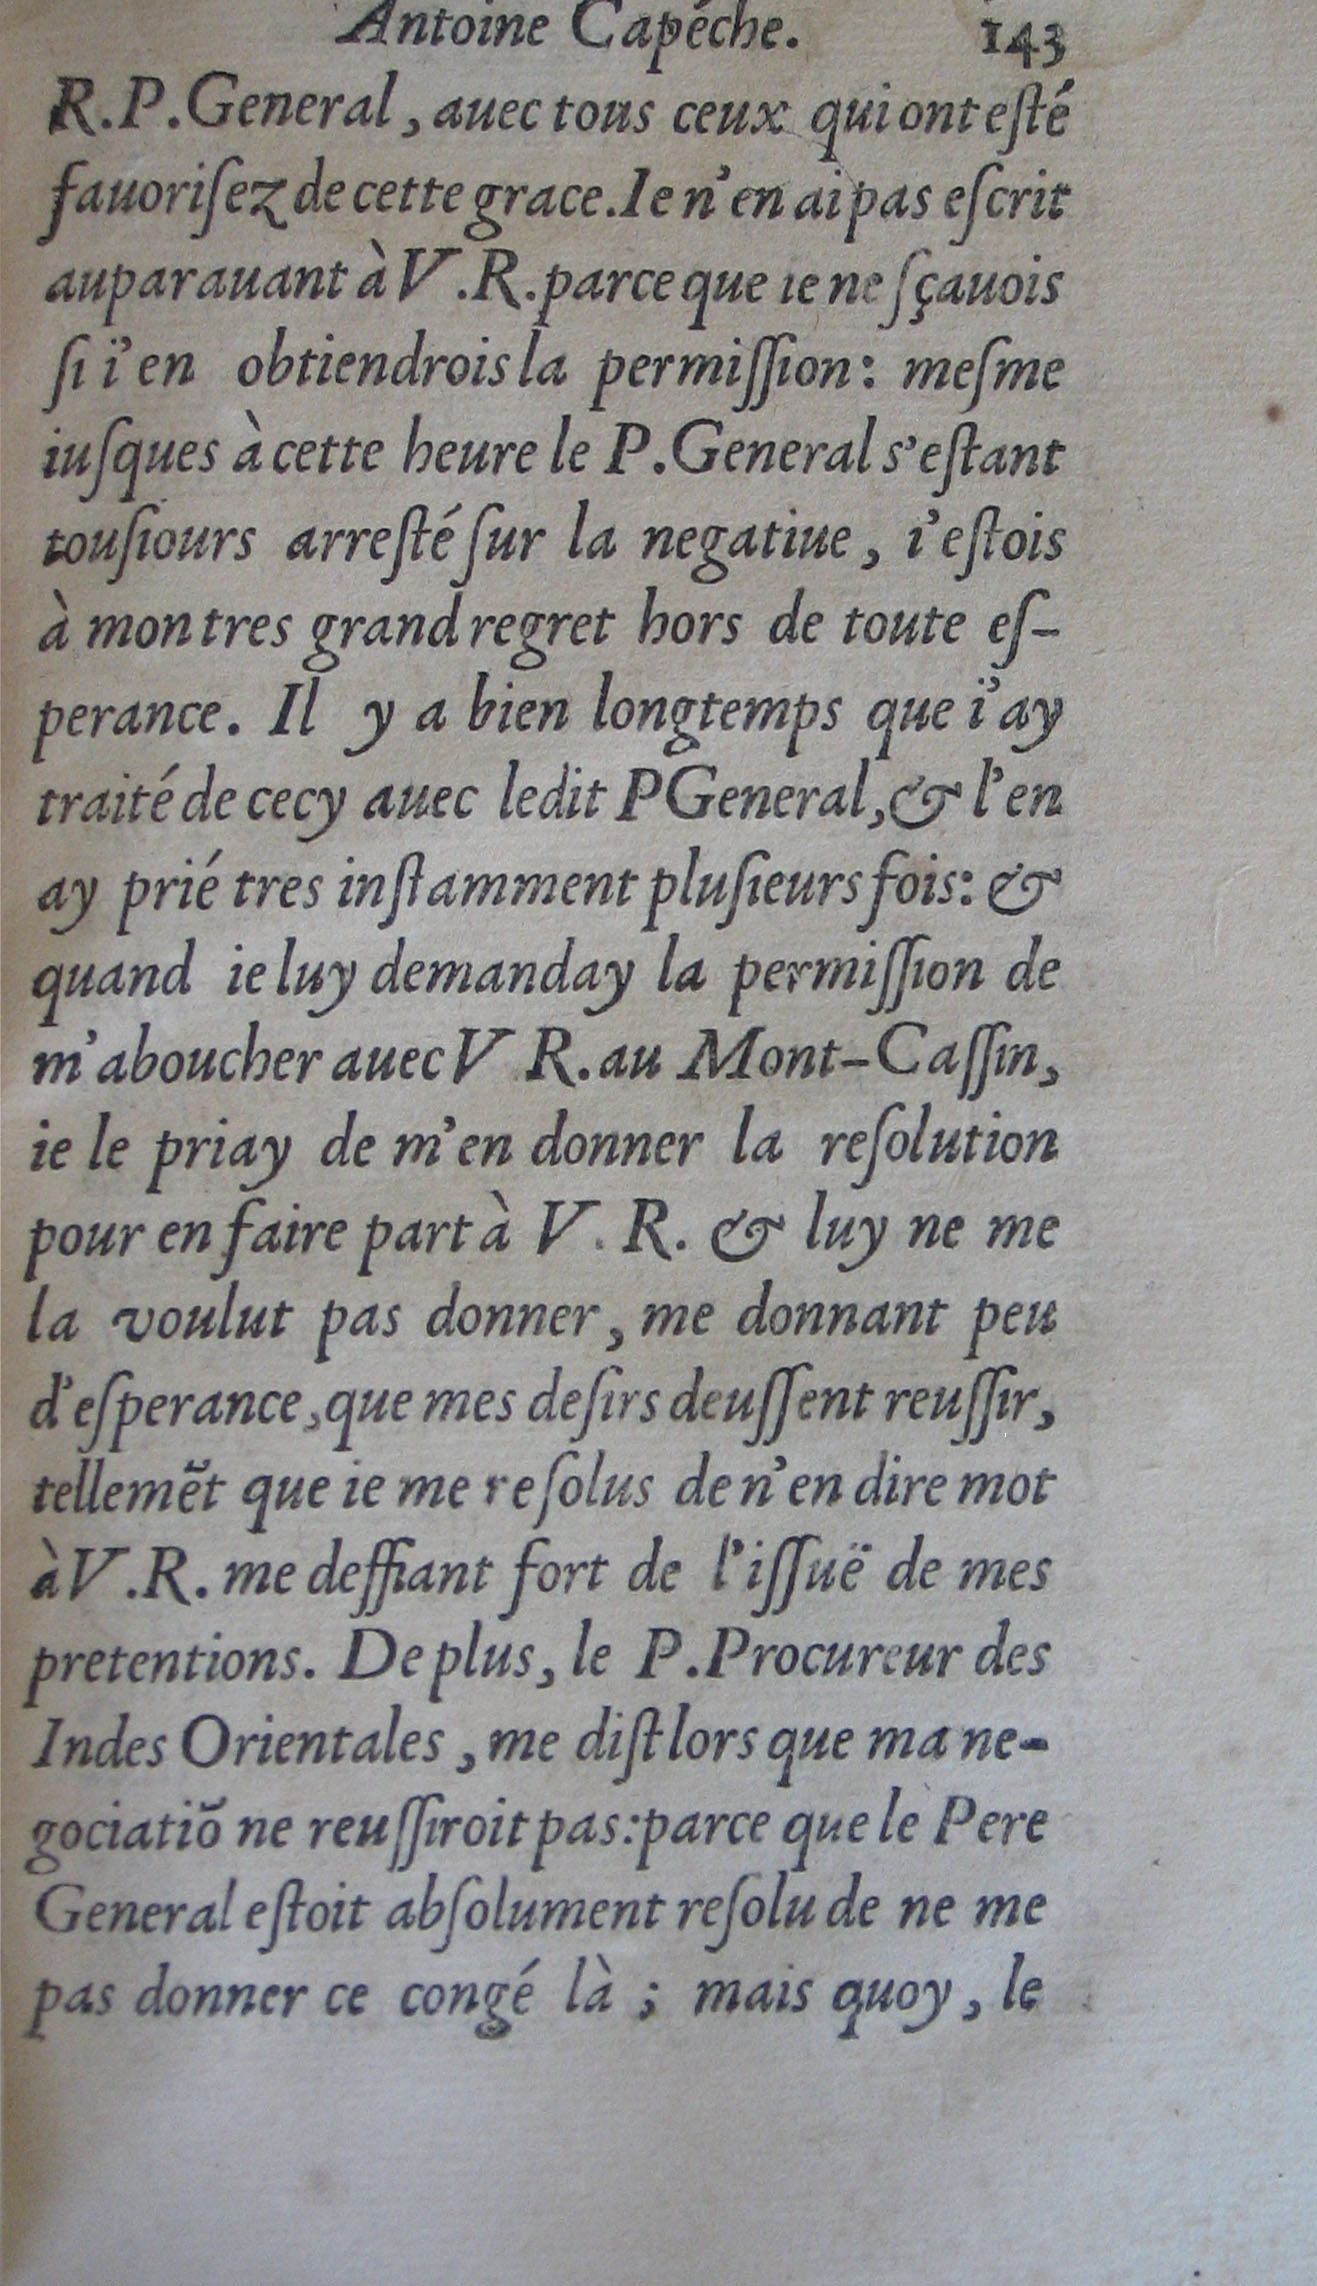 Antoine Capéche. 143
R.P.General, auec tous ceux qui ont eſté
fauoriſez de cette grace. Ie n'en ai pas eſcrit
auparauant à V.R. parce que ie ne ſçauois
ſi i'en obtiendrois la permiſſion: meſme
iuſques à cette heure le P.General s'eſtant
touſiours arreſté ſur la negatiue, i'eſtois
à mon tres grand regret hors de toute eſ-
perance. Il y a bien longtemps que i'ay
traité de cecy auec ledit P General, & l'en
ay prié tres inſtamment pluſieurs fois: &
quand ie luy demanday la permiſſion de
m'aboucher auec V R. au Mont-Caſſin,
ie le priay de m'en donner la reſolution
pour en faire part à V. R. & luy ne me
la voulut pas donner, me donnant peu
d'eſperance, que mes deſirs deuſſent reuſſir,
tellemẽt que ie me reſolus de n'en dire mot
à V.R. me deffiant fort de l'iſſuë de mes
pretentions. De plus, le P.Procureur des
Indes Orientales, me diſt lors que ma ne-
gociatiõ ne reuſſiroit pas: parce que le Pere
General eſtoit abſolument reſolu de ne me
pas donner ce congé là ; mais quoy, le